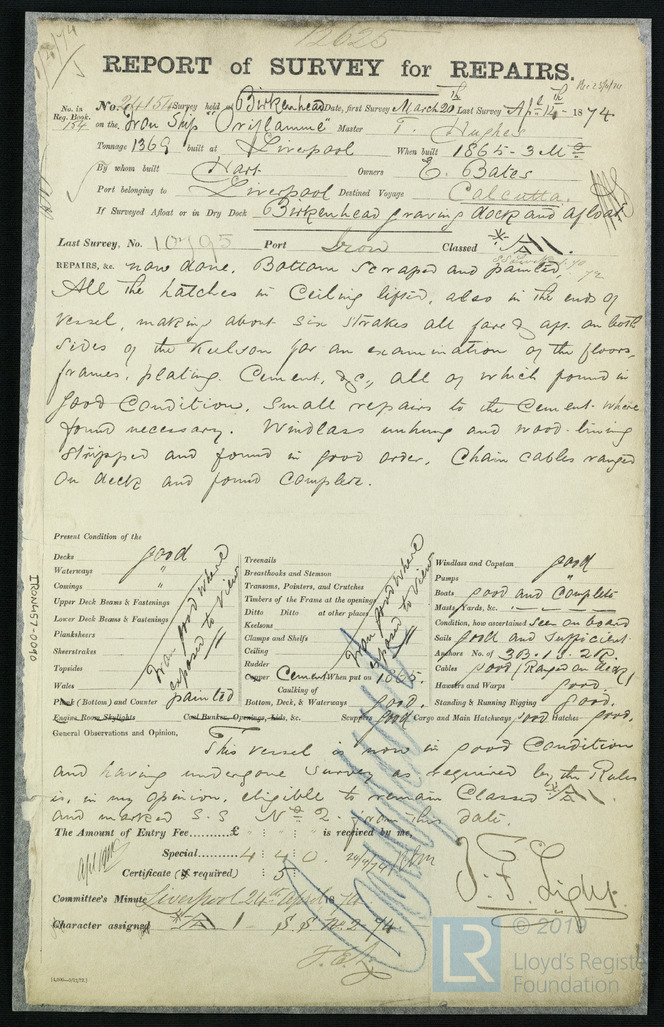 12625
REPORT of SURVEY for REPAIRS.
No. in Reg. Book. 154
No. 24154 Survey held at Birkenhead Date, first Survey March 20th Last Survey April 14th 1874
on the Iron Ship "Oriflamme" Master T. Hughes
Tonnage 1369 built at Liverpool When built 1865 - 3 Mo
By whom built Hart Owners E. Bates
Port belonging to Liverpool Destined Voyage Calcutta.
If Surveyed Afloat or in Dry Dock Birkenhead graving dock and afloat
Last Survey, No. 10795 Port Iron Classed A1.
REPAIRS, &c. now done. Bottom scraped and painted,
All the hatches in Ceiling lifted, also in the ends of
vessel, making about six strakes all fore & aft. on both
sides of the Keelson for an examination of the floors,
frames, plating. Cement, &c, all of which found in
good Condition. Small repairs to the Cement where
found necessary. Windlass unhung and wood-lining
stripped and found in good order. Chain cables ranged
on deck and found complete.
Present Condition of the
Decks good
Waterways "
Comings "
Upper Deck Beams & Fastenings
Lower Deck Beams & Fastenings
Planksheers
Sheerstrakes
Topsides
Wales
Iron good where exposed to view
Plank (Bottom) and Counter painted
Engine Room Skylights Coal Bunker Openings, lids, &c.
Treenails
Breasthooks and Stemson
Transoms, Pointers, and Crutches
Timbers of the Frame at the openings
Ditto Ditto at other places
Keelsons
Clamps and Shelfs
Ceiling
Rudder
Iron good where exposed to view
Copper Cement When put on 1865.
Caulking of
Bottom, Deck, & Waterways good.
Scuppers good Cargo and Main Hatchways good Hatches good.
Windlass and Capstan good
Pumps "
Boats good and Complete
Masts, Yards, &c.
Condition, how ascertained seen on board
Sails good and sufficient
Anchors No. of 3B. 1S. 2K.
Cables good (Ranged on deck)
Hawsers and Warps good.
Standing & Running Rigging good.
General Observations and Opinion,
This vessel is now in good Condition
and having undergone Survey as required by the Rules
is, in my opinion, eligible to remain Classed A1
and marked S.S No 2. from this date.
The Amount of Entry Fee......£ " : " : " is received by me,
Special..... 4 : 4 : 0.
Certificate (if required) : 5 :
J. F. Light.
Committee's Minute Liverpool 24th April 1874
Character assigned A1 - S S No 2 - 74
IRON457-0090
© 2019
LR
Lloyd's Register
Foundation